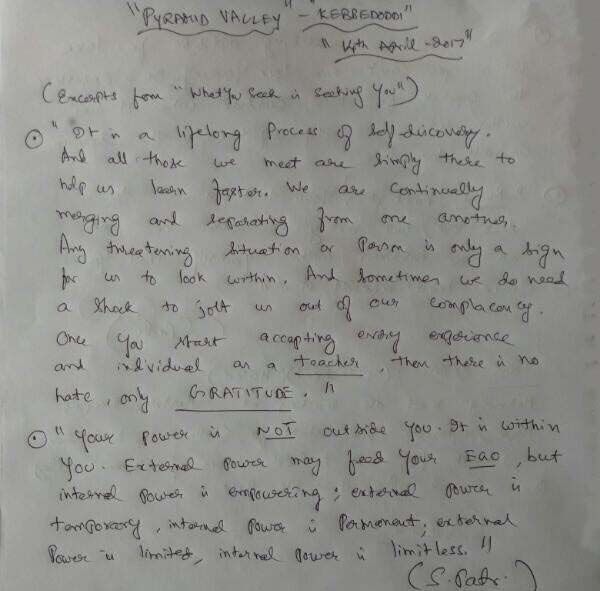 "PYRAMID VALLEY" - "KEBBEDODDI"
"14th April - 2017"
(Excerpts from "What You Seek is Seeking You")
"It is a lifelong process of self discovery.
And all those we meet are simply there to
help us learn faster. We are continually
merging and separating from one another.
Any threatening situation or person is only a sign
for us to look within. And sometimes we do need
a shock to jolt us out of our complacency.
Once you start accepting every experience
and individual as a teacher, then there is no
hate, only GRATITUDE."
"Your power is NOT outside you. It is within
you. External power may feed your EGO, but
internal power is empowering; external power is
temporary, internal power is permanent; external
power is limited, internal power is limitless."
(S. Patr.)